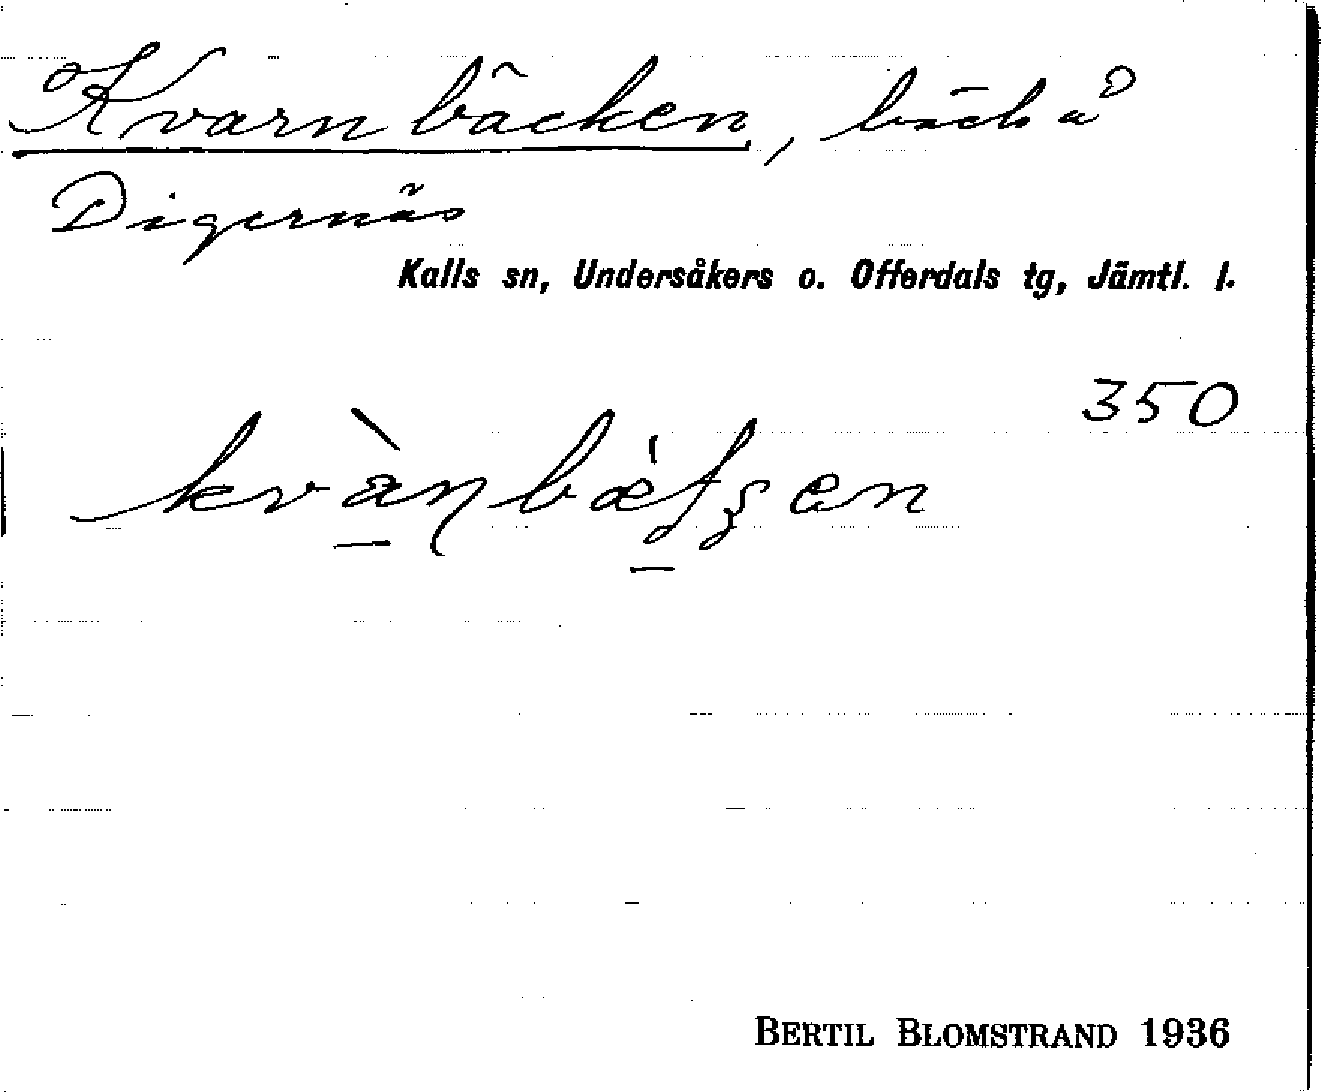 Kvarnbäcken, bäck å
Digernäs
Kalls sn, Undersåkers o. Offerdals tg, Jämtl. l.
350
BERTIL BLOMSTRAND 1936